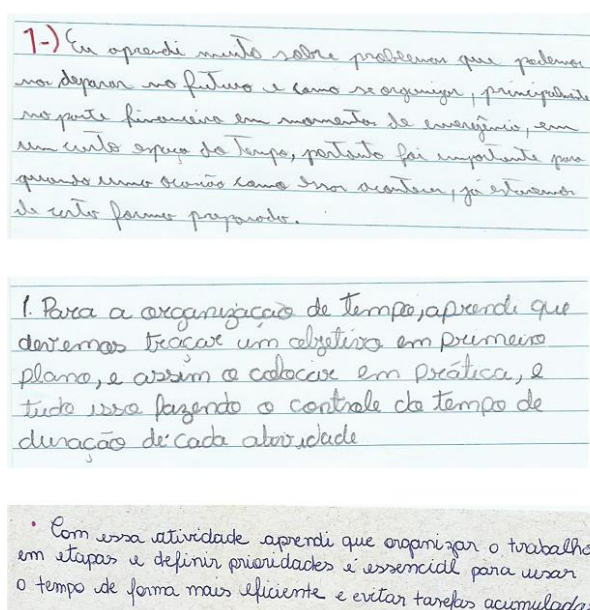 1-) Eu aprendi muito sobre problemas que podemos
nos deparar no futuro e como se organizar, principalmente
na parte financeira em momentos de emergência, em
um curto espaço de tempo, portanto foi importante para
quando uma ocasião como essa acontecer, já estaremos
de certa forma preparado.
1. Para a organização de tempo, aprendi que
devemos traçar um objetivo em primeiro
plano, e assim o colocar em prática, e
tudo isso fazendo o controle do tempo de
duração de cada atividade
• Com essa atividade aprendi que organizar o trabalho
em etapas e definir prioridades é essencial para usar
o tempo de forma mais eficiente e evitar tarefas acumuladas